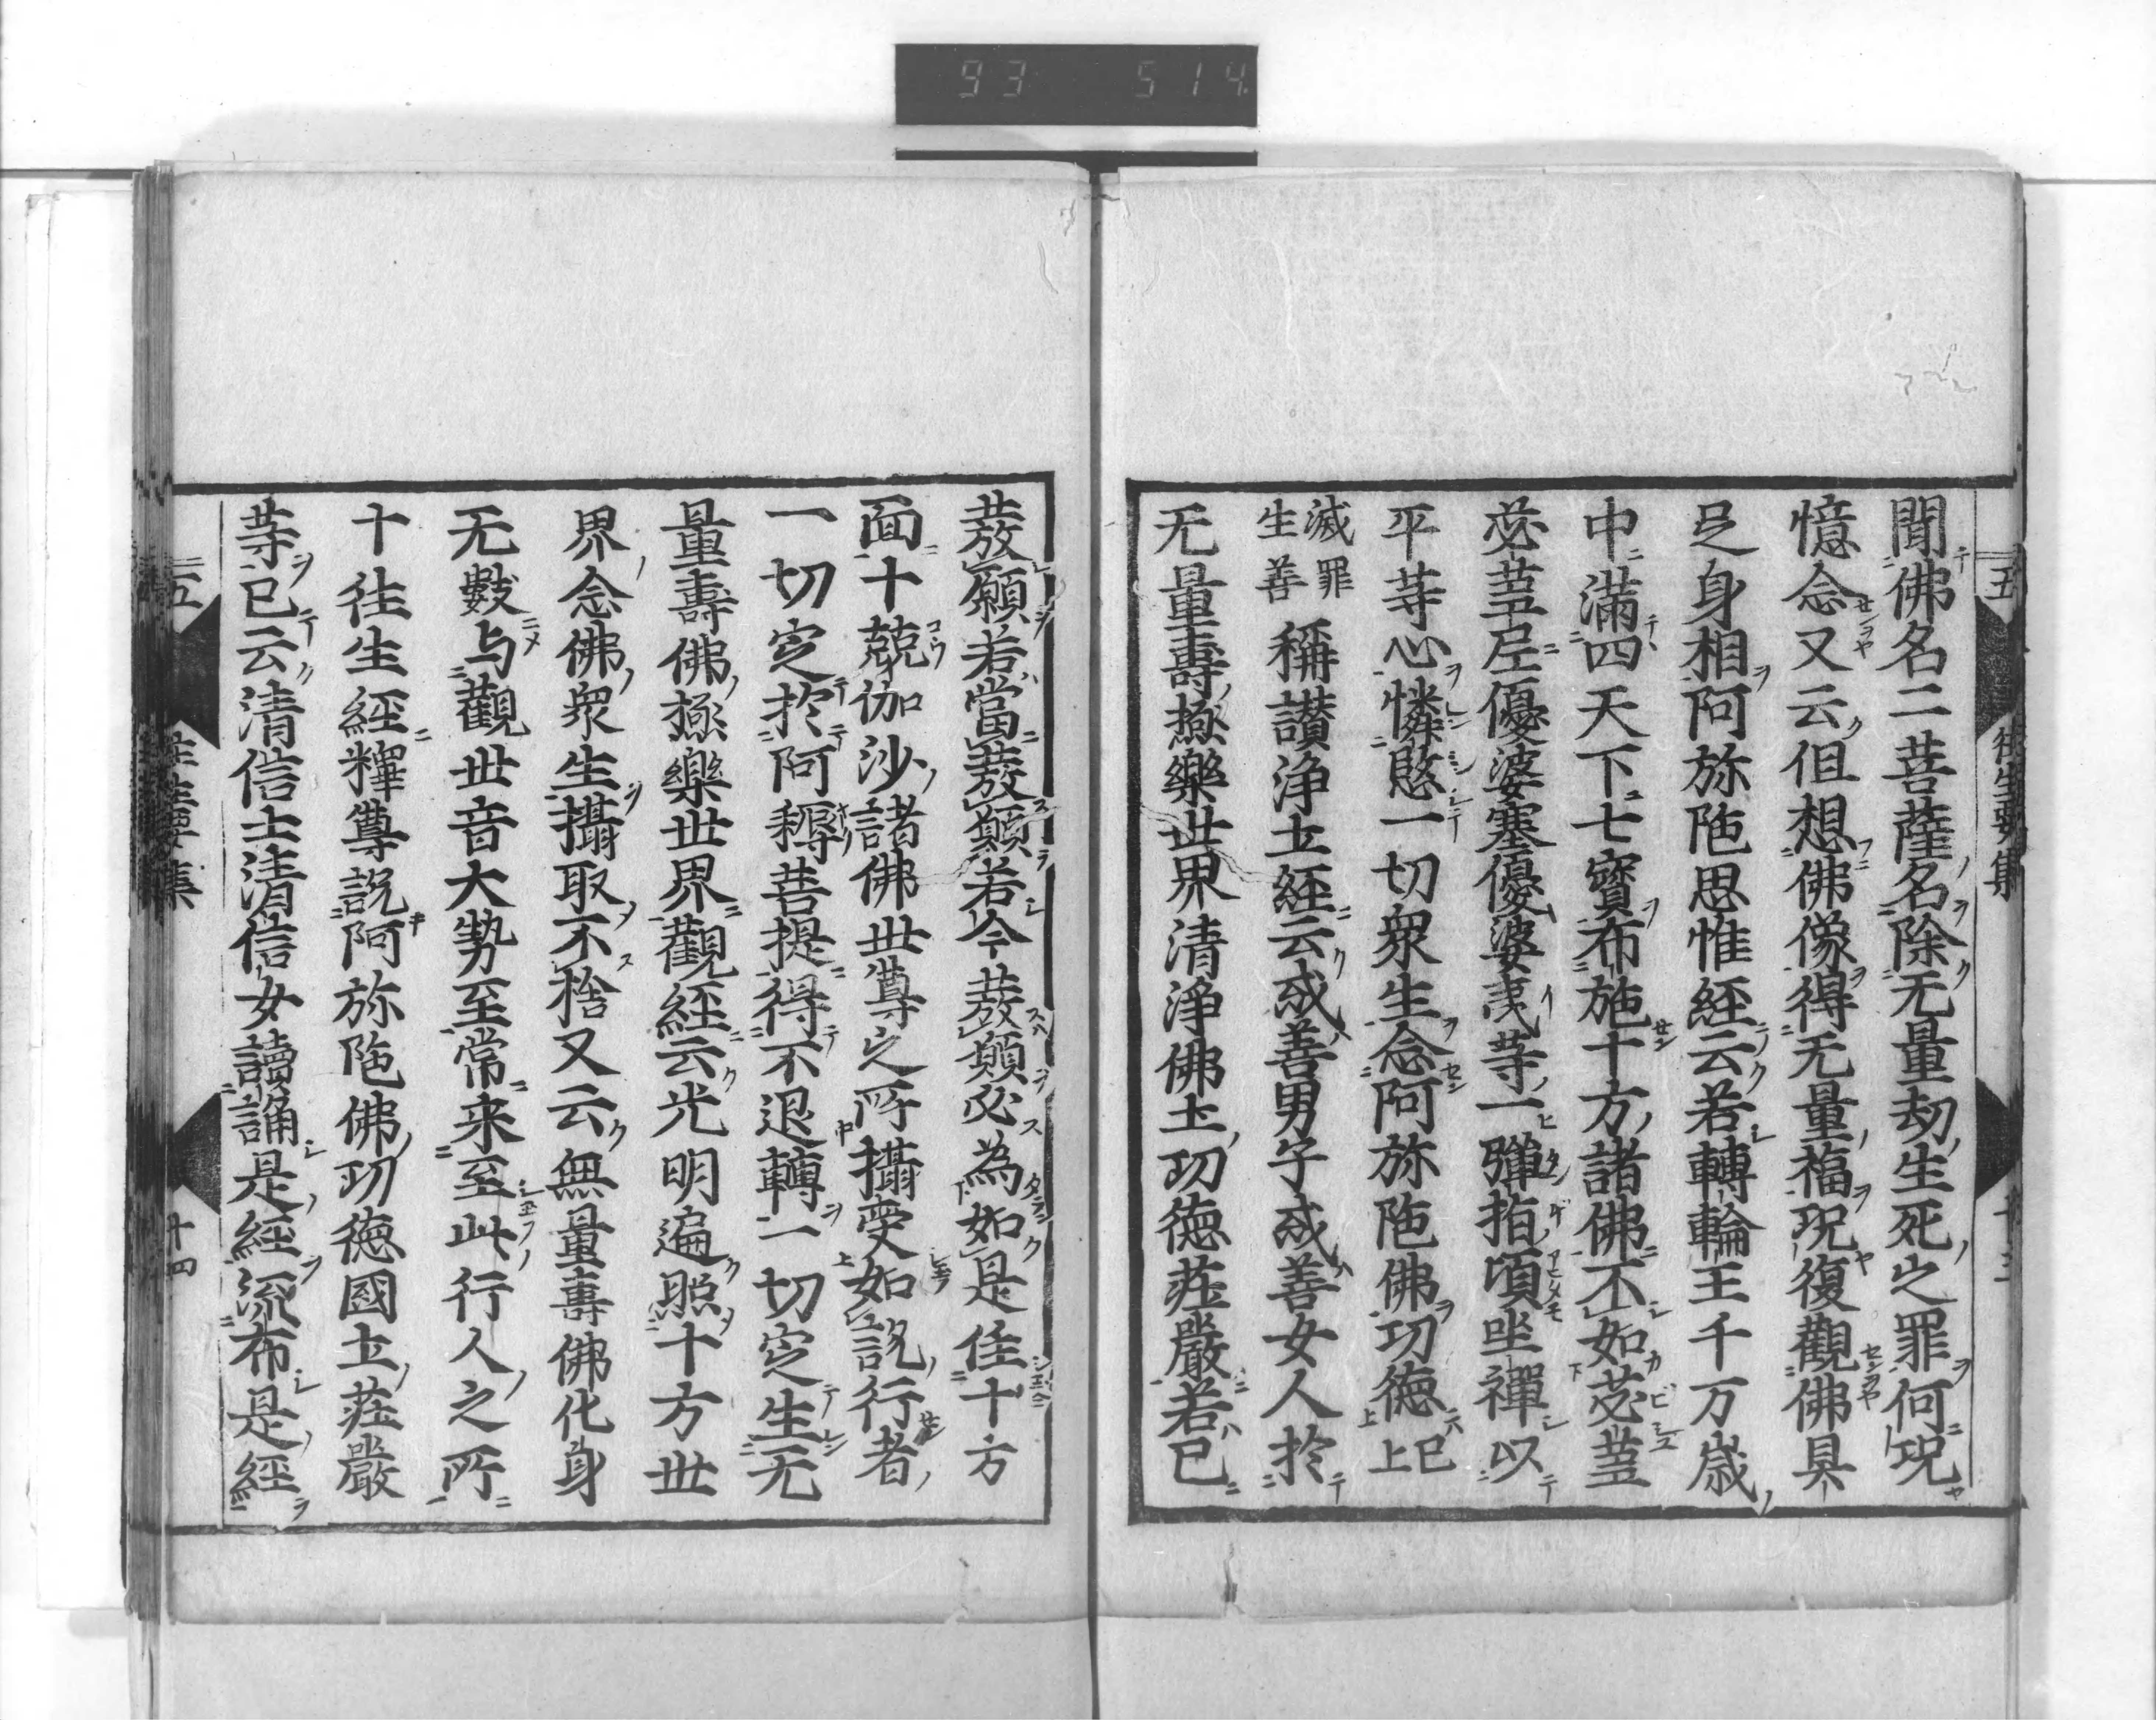 93 514.
聞佛名二菩薩名除无量劫生死之罪何况
憶念又云但想佛像得无量福况復觀佛具
足身相阿弥陁思惟經云若轉輪王千万歳
中滿四天下七寳布施十方諸佛不如苾蒭
苾蒭尼優婆塞優婆夷等一彈指頃坐禪以
平等心憐愍一切衆生念阿弥陁佛功徳已上
滅罪生善
稱讃浄土經云或善男子或善女人於
无量壽極樂世界清浄佛土功徳荘嚴若已
發願若當發願若今發願必為如是住十方
面十兢伽沙諸佛世尊之所攝受如説行者
一切定於阿耨菩提得不退轉一切定生无
量壽佛極樂世界觀經云光明遍照十方世
界念佛衆生攝取不捨又云無量壽佛化身
无數与觀世音大勢至常来至此行人之所
十徃生經釋尊説阿弥陁佛功徳國土荘嚴
等已云清信士清信女讀誦是經流布是經
五
往生要集
十四